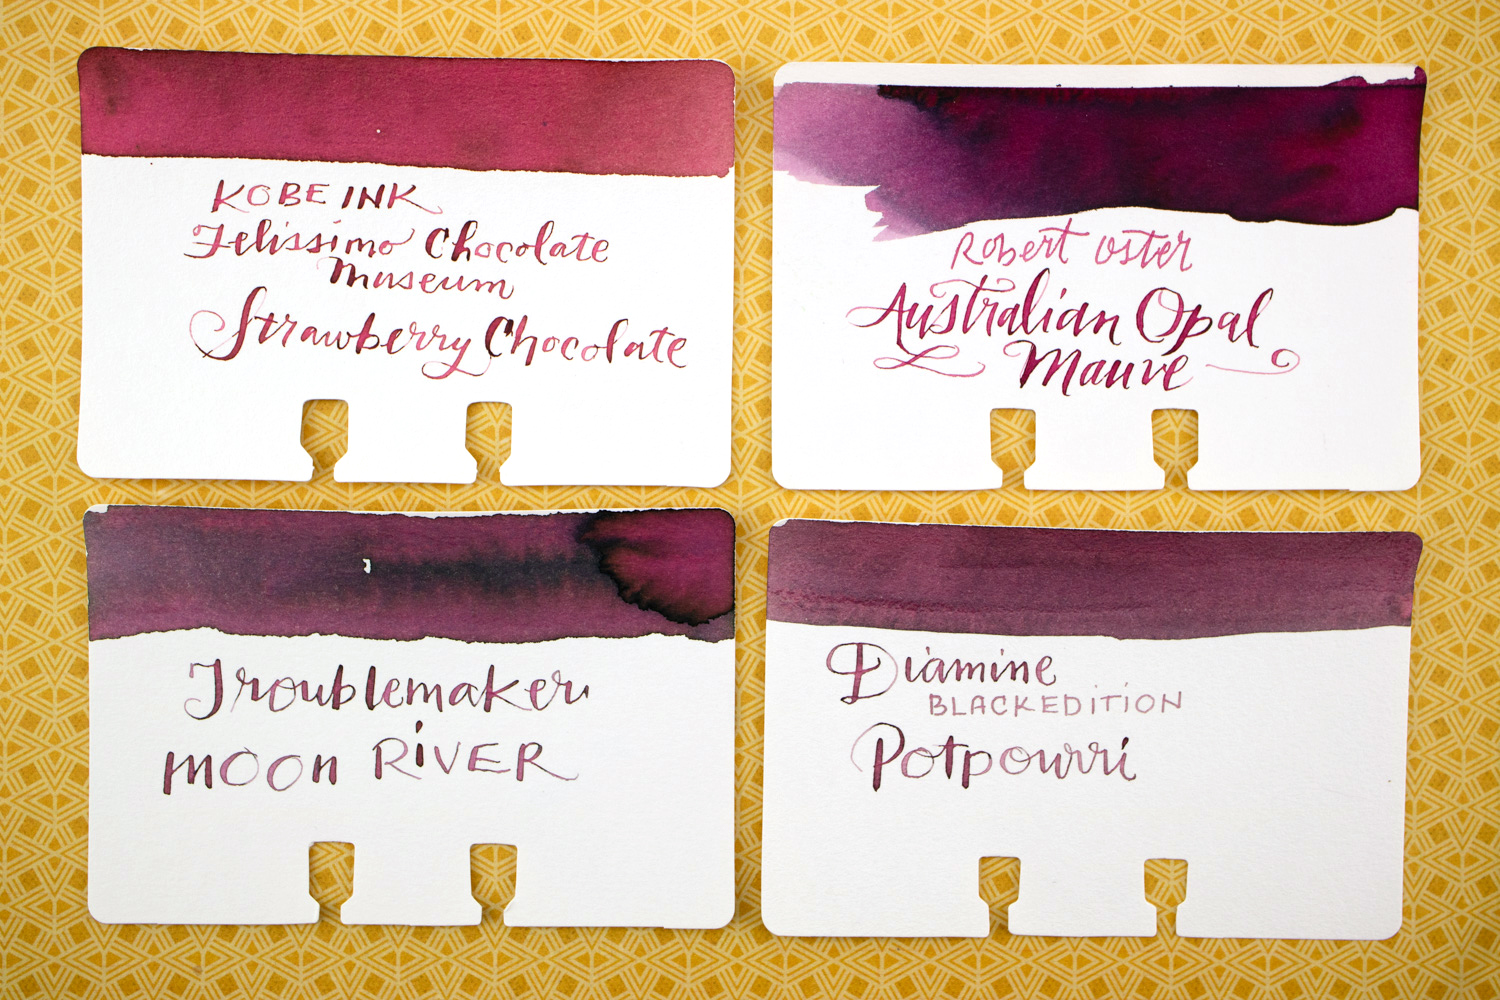 KOBE INK
Felissimo Chocolate
Museum
Strawberry Chocolate
Robert Oster
Australian Opal
Mauve
Troublemaker
MOON RiVER
Diamine
BLACKEDiTiON
Potpourri